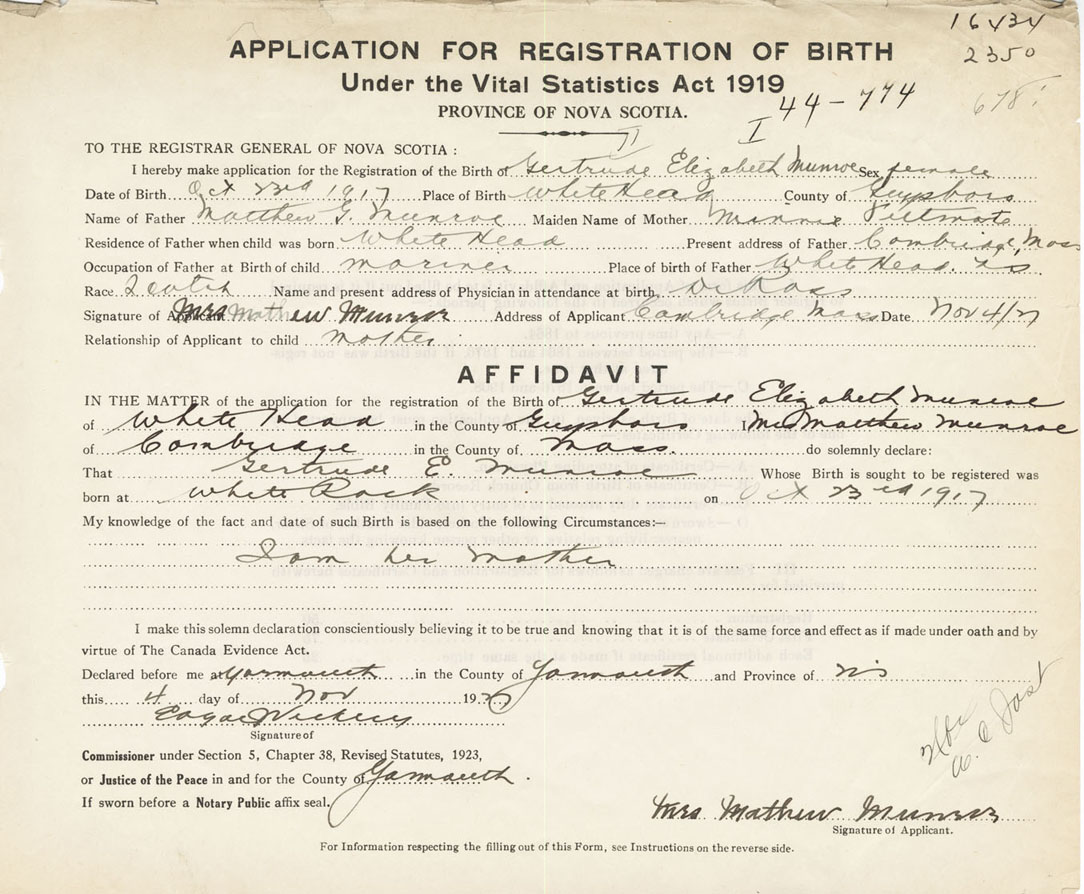 16434
2350
APPLICATION FOR REGISTRATION OF BIRTH
Under the Vital Statistics Act 1919
44-774
678
PROVINCE OF NOVA SCOTIA.
I
II
TO THE REGISTRAR GENERAL OF NOVA SCOTIA :
I hereby make application for the Registration of the Birth of Gertrude Elizabeth Munroe Sex female
Date of Birth Oct 23rd 1917 Place of Birth White Head County of Guysboro
Name of Father Matthew G. Munroe Maiden Name of Mother Minnie
Residence of Father when child was born White Head Present address of Father Cambridge, Mass
Occupation of Father at Birth of child mariner Place of birth of Father White Head. NS
Race Scotch Name and present address of Physician in attendance at birth, Dr Ross
Signature of Applicant Mrs Mathew Munroe Address of Applicant Cambridge Mass Date Nov 4/27
Relationship of Applicant to child mother
AFFIDAVIT
IN THE MATTER of the application for the registration of the Birth of Gertrude Elizabeth Munroe
of White Head in the County of Guysboro I Mrs Matthew Munroe
of Cambridge in the County of Mass. do solemnly declare:
That Gertrude E. Munroe Whose Birth is sought to be registered was
born at White Rock on Oct 23rd 1917
My knowledge of the fact and date of such Birth is based on the following Circumstances:—
I am her mother
I make this solemn declaration conscientiously believing it to be true and knowing that it is of the same force and effect as if made under oath and by
virtue of The Canada Evidence Act.
Declared before me at Yarmouth in the County of Yarmouth and Province of NS
this 4 day of Nov 1927
Edgar Vickery
Signature of
Commissioner under Section 5, Chapter 38, Revised Statutes, 1923,
or Justice of the Peace in and for the County of Yarmouth.
If sworn before a Notary Public affix seal.
A. C. Jost
Mrs. Mathew Munroe
Signature of Applicant.
For Information respecting the filling out of this Form, see Instructions on the reverse side.